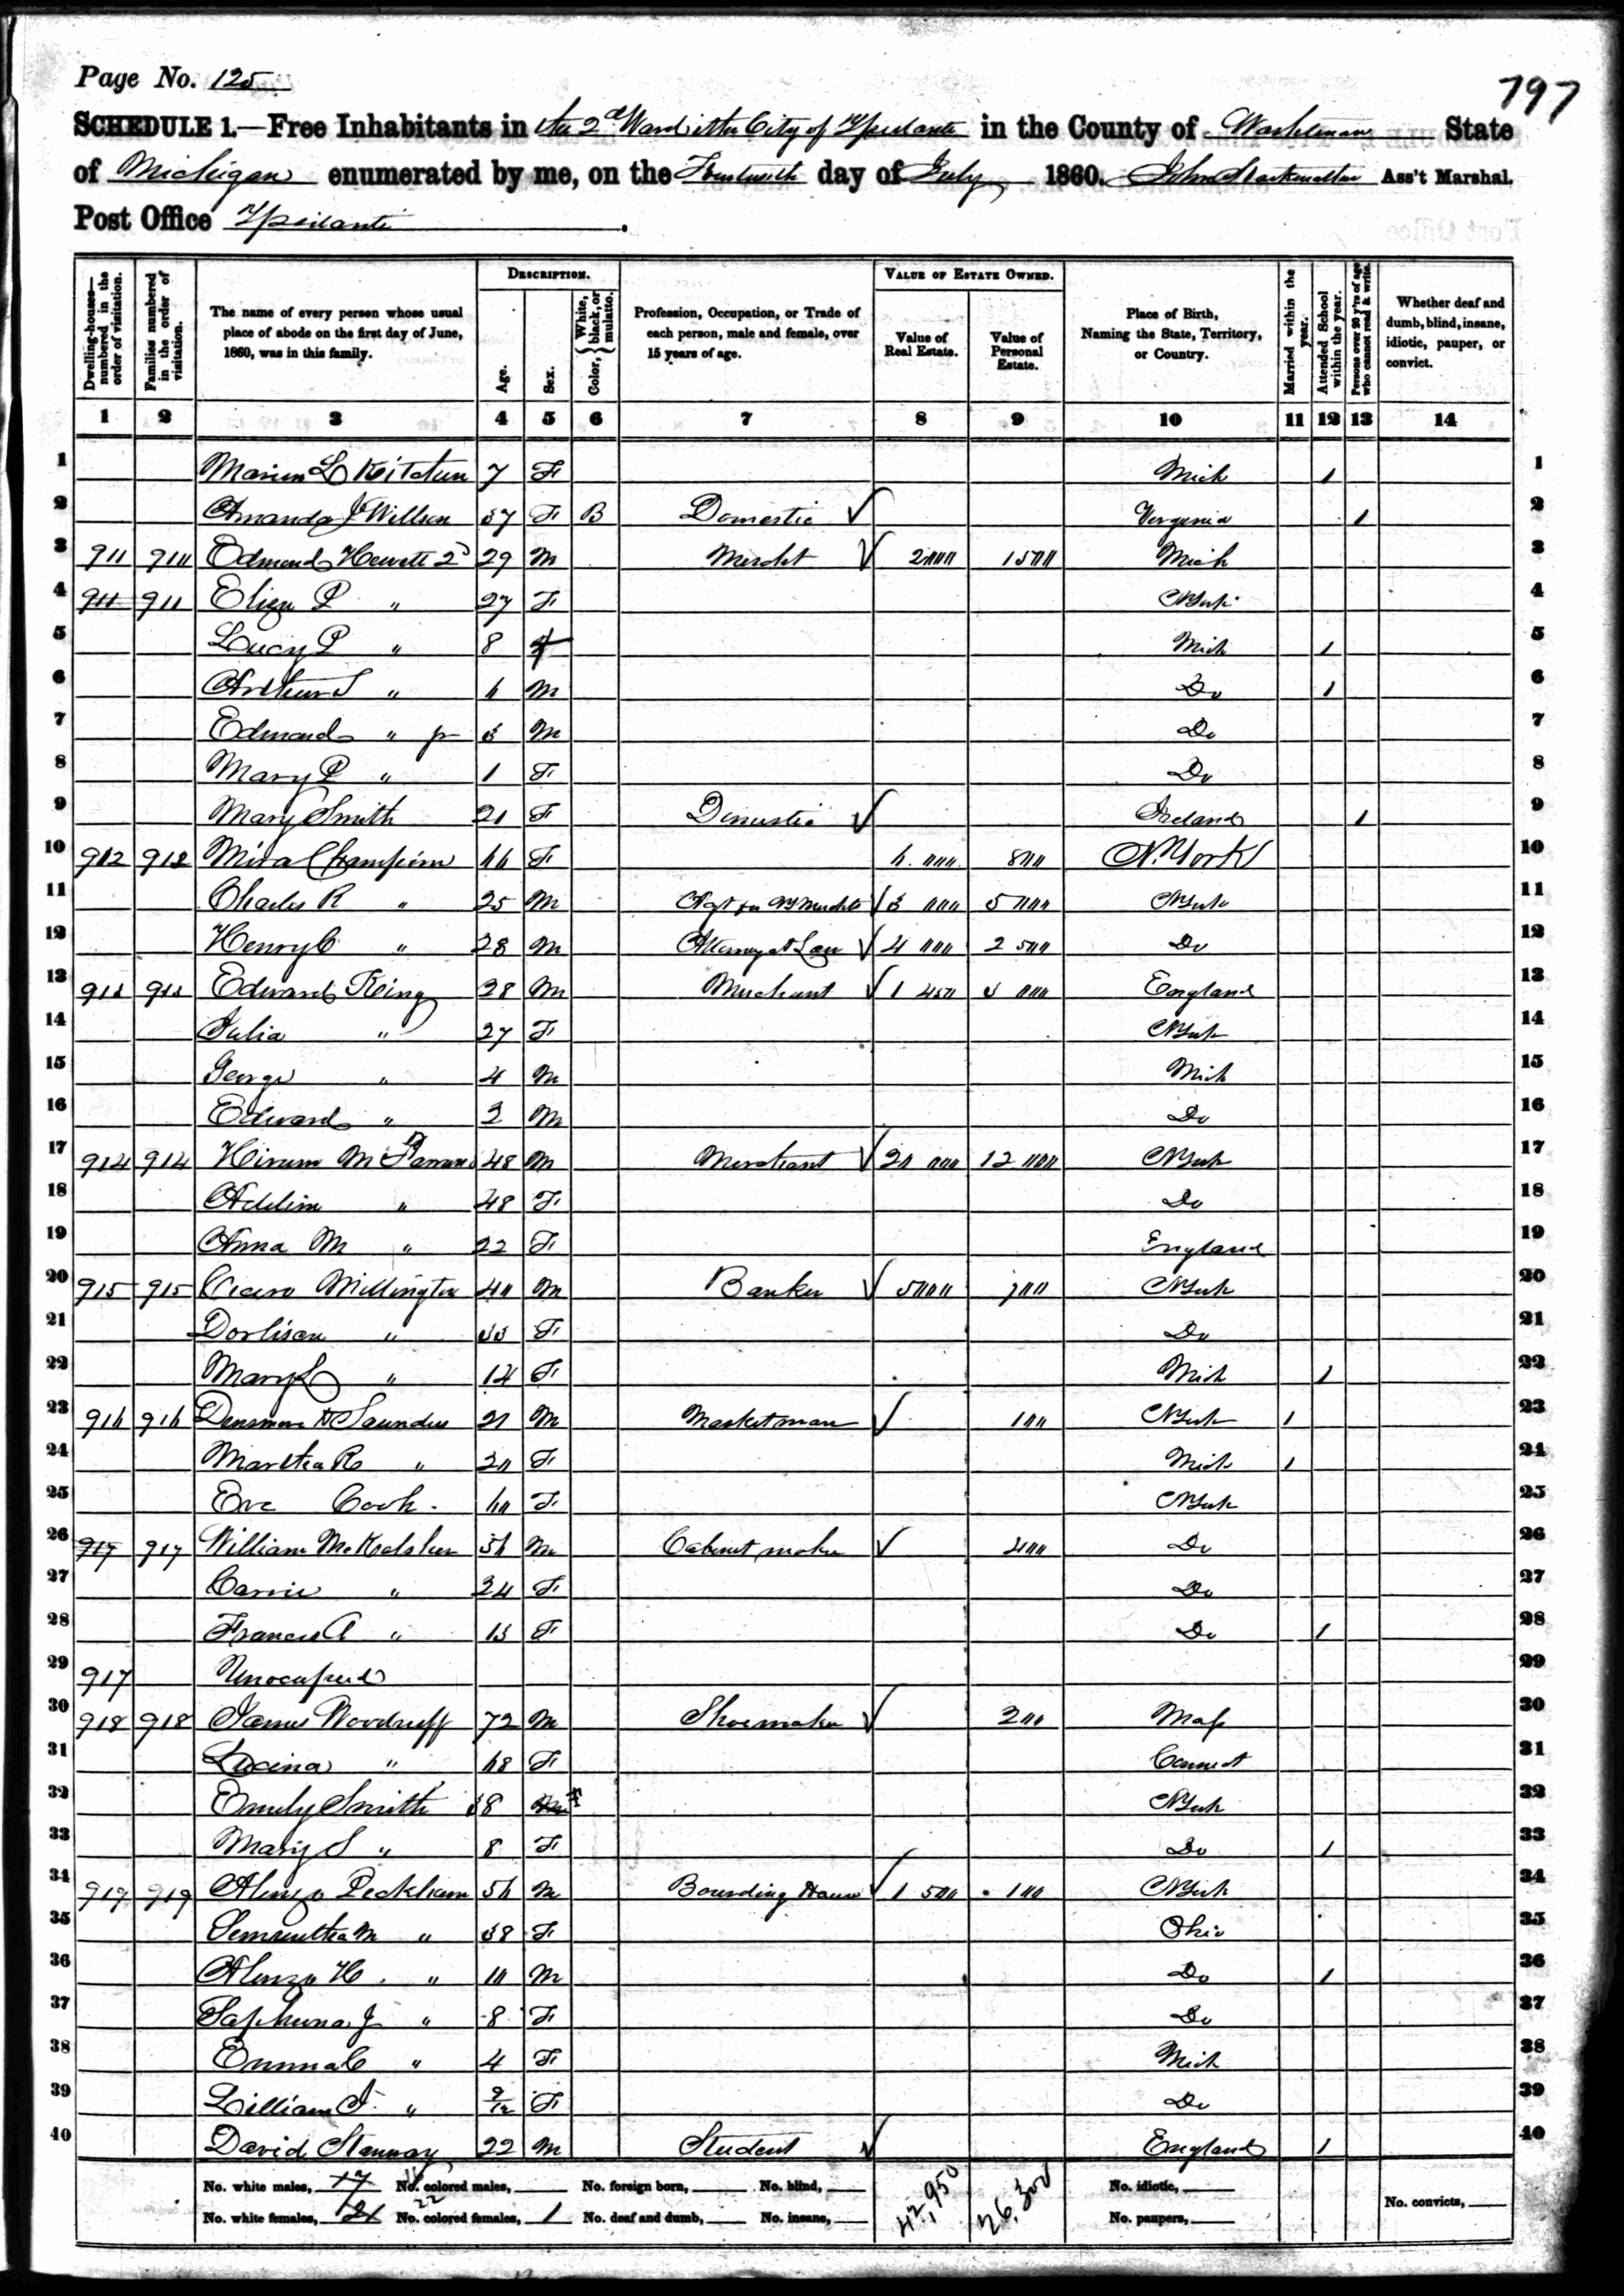 Page No. 125
797
SCHEDULE 1.—Free Inhabitants in the 2d Ward in the City of Ypsilanti in the County of Washtenaw State
of Michigan enumerated by me, on the day of July 1860. John Ass't Marshal.
Post Office Ypsilanti
Dwelling-houses—numbered in the order of visitation.
Families numbered in the order of visitation.
The name of every person whose usual place of abode on the first day of June, 1860, was in this family.
DESCRIPTION.
Age.
Sex.
Color, { White, black, or mulatto.
Profession, Occupation, or Trade of each person, male and female, over 15 years of age.
VALUE OF ESTATE OWNED.
Value of Real Estate.
Value of Personal Estate.
Place of Birth, Naming the State, Territory, or Country.
Married within the year.
Attended School within the year.
Persons over 20 y'rs of age who cannot read & write.
Whether deaf and dumb, blind, insane, idiotic, pauper, or convict.
1 2 3 4 5 6 7 8 9 10 11 12 13 14
1 L 7 F Mich 1 1
2 Amanda J Willson 37 F B Domestic ✓ Virginia 1 2
3 911 910 Edmond Hewett 2d 29 M Mercht ✓ 2000 1500 Mich 3
4 911 911 Eliza P " 27 F N York 4
5 Lucy P " 8 F Mich 1 5
6 Arthur S " 6 M Do 1 6
7 Edmond " jr 3 M Do 7
8 Mary P " 1 F Do 8
9 Mary Smith 21 F Domestic ✓ Ireland 1 9
10 912 912 Mira Champion 66 F 6.000. 800 N. York 10
11 Charles R " 25 M Agt for NY Merchts ✓ 3 000 5 000 N York 11
12 Henry C " 28 M Attorney at Law ✓ 4 000 2 500 Do 12
13 913 913 Edward King 38 M Merchant ✓ 1 450 3 000 England 13
14 Julia " 27 F N York 14
15 George " 4 M Mich 15
16 Edward " 2 M Do 16
17 914 914 Hiram M 48 M Merchant ✓ 20 000 12 000 N York 17
18 Adeline " 48 F Do 18
19 Anna M " 22 F England 19
20 915 915 Cicero Millington 40 M Banker ✓ 5000 700 N York 20
21 " 33 F Do 21
22 Mary L " 14 F Mich 1 22
23 916 916 Densmore Saunders 21 M Marketman ✓ 100 N York 1 23
24 Martha R " 20 F Mich 1 24
25 Eve Cook. 60 F N York 25
26 917 917 William 56 M Cabinet maker ✓ 400 Do 26
27 Carrie " 24 F Do 27
28 Frances A " 13 F Do 1 28
29 917 Unocupied 29
30 918 918 James Woodruff 72 M Shoemaker ✓ 200 Mass 30
31 " 68 F Connect 31
32 Emily Smith 38 F N York 32
33 Mary S " 8 F Do 1 33
34 919 919 Alonzo Peckham 56 M Boarding House ✓ 1 500 100 N York 34
35 M " 38 F Ohio 35
36 Alonzo H. " 10 M Do 1 36
37 J " 8 F Do 37
38 Emma C " 4 F Mich 38
39 Lillian " 9/12 F Do 39
40 David Stanway 22 M Student ✓ England 1 40
No. white males, 17 No. colored males, No. foreign born, No. blind, 42,950 26,300 No. idiotic, No. convicts,
No. white females, 21 22 No. colored females, 1 No. deaf and dumb, No. insane, No. paupers,